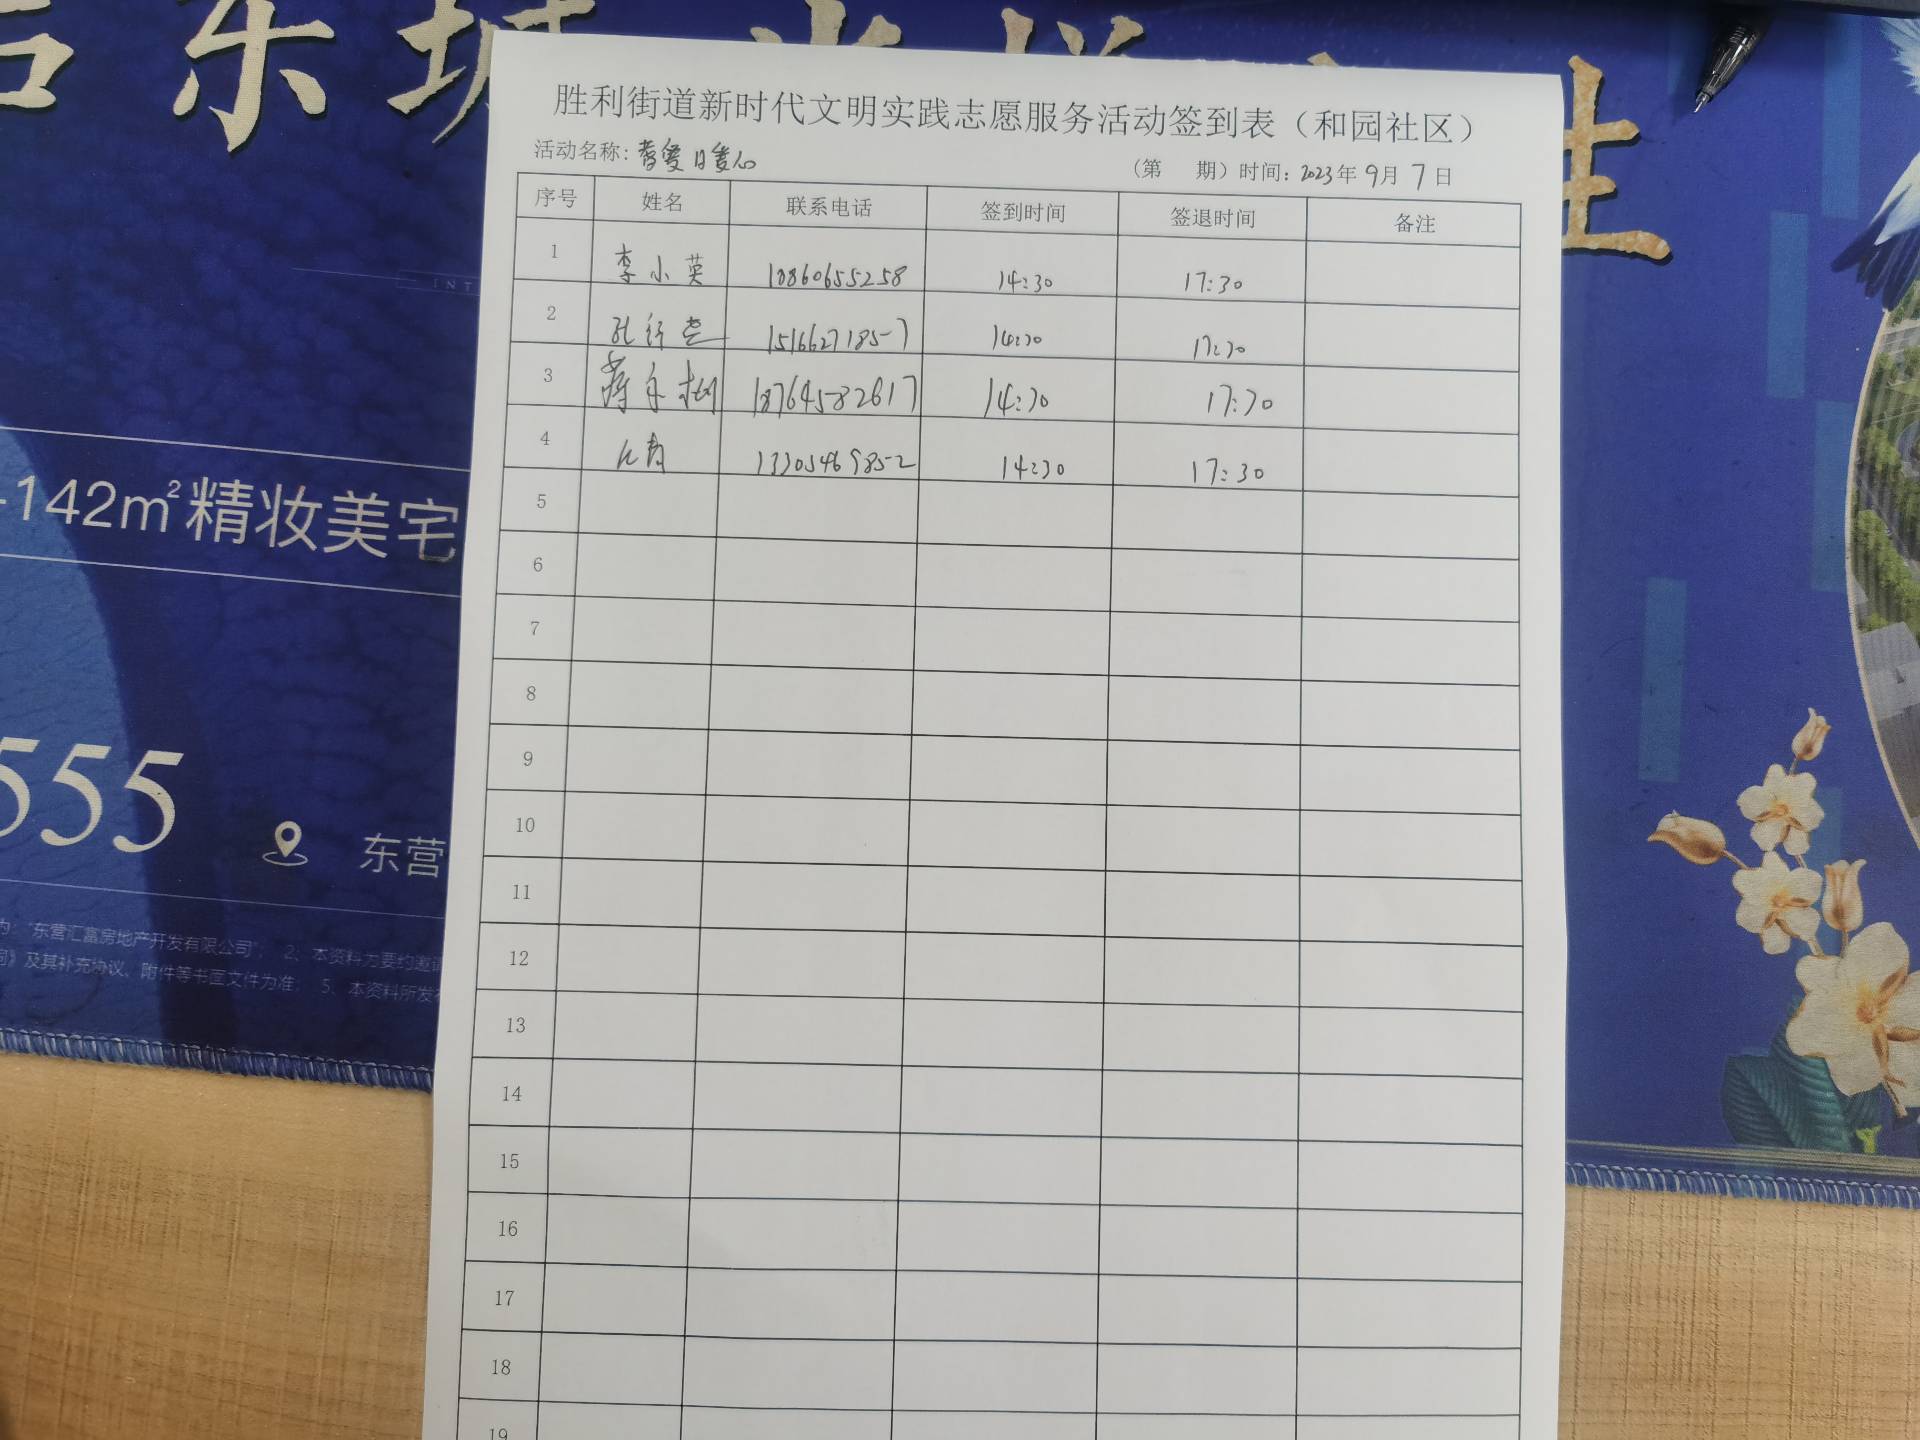 东城
142m²精妆美宅
555
东营
为："东营汇富房地产开发有限公司"； 2、本资料为要约邀请
及其补充协议、附件等书面文件为准； 5、本资料所发布
胜利街道新时代文明实践志愿服务活动签到表（和园社区）
活动名称：
（第 期）时间：2023年9月7日
序号 姓名 联系电话 签到时间 签退时间 备注
1 李小英 18860655258 14:30 17:30
2 孔 15166271857 14:30 17:30
3 蒋 18764582617 14:30 17:30
4 13305469852 14:30 17:30
5
6
7
8
9
10
11
12
13
14
15
16
17
18
19